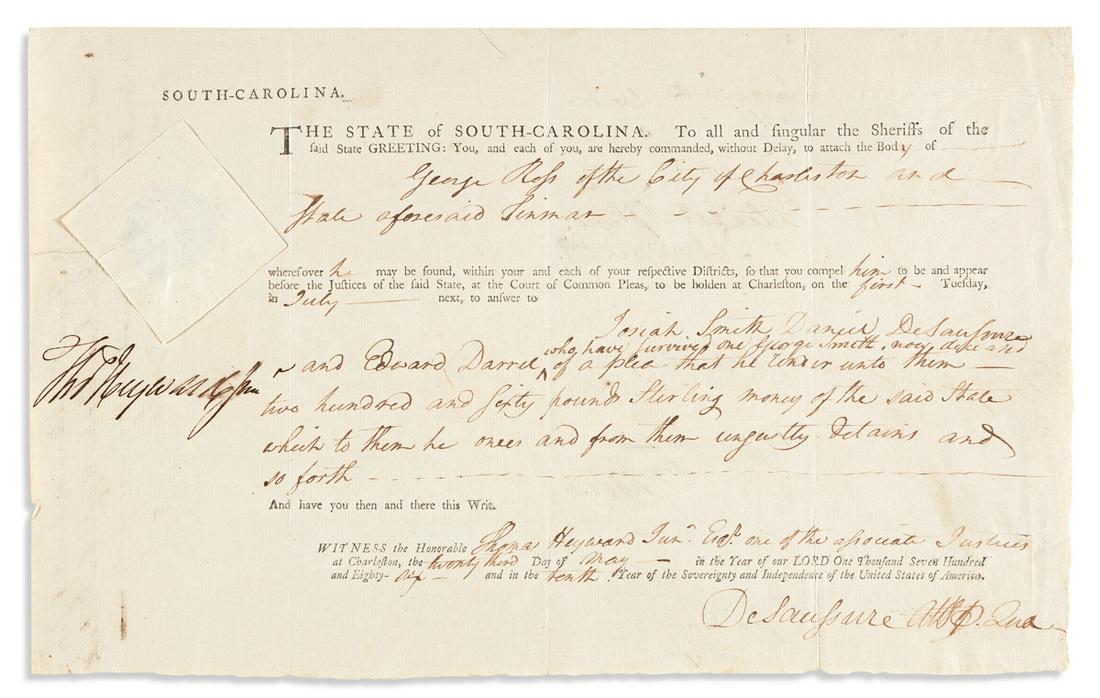 SOUTH-CAROLINA.
THE STATE of SOUTH-CAROLINA. To all and ſingular the Sheriffs of the
ſaid State GREETING: You, and each of you, are hereby commanded, without Delay, to attach the Body of
George Roſs of the City of Charleston and
State aforesaid Tinman
whereſoever he may be found, within your and each of your reſpective Diſtricts, ſo that you compel him to be and appear
before the Juſtices of the ſaid State, at the Court of Common Pleas, to be holden at Charleſton, on the first Tueſday,
in July next, to anſwer to
Josiah Smith Daniel DeSauſsure
who have survived one George Smith, now dec'd and
and Edward Darrel ^ of a plea that he render unto them
two hundred and ſixty pounds Sterling money of the said State
which to them he owes and from them unjustly detains and
so forth
And have you then and there this Writ.
Tho Heyward Jun
WITNESS the Honorable Thomas Heyward Junr. Esqr. one of the aſsociate Justices
at Charleſton, the twenty third Day of May in the Year of our LORD One Thouſand Seven Hundred
and Eighty-six and in the tenth Year of the Sovereignty and Independence of the United States of America.
DeSauſsure Att P. Que